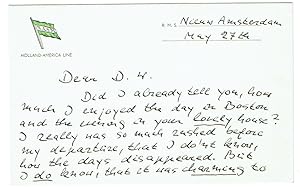 HOLLAND-AMERICA LINE
R.M.S. Nieuw Amsterdam
May 27th
Dear D. W.
Did I already tell you, how
much I enjoyed the day in Boston
and the evening in your lovely house?
I really was so much rushed before
my departure, that I don't know,
how the days disappeared. But
I do know, that it was charming to